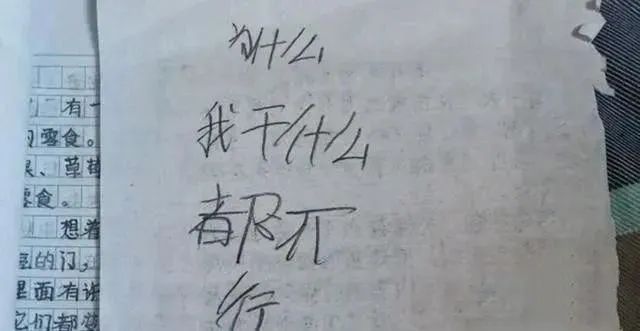 为什么
我干什么
都不
行
有一
零食。
、草莓
零食。
想着
的门，
里面有许
它们都变